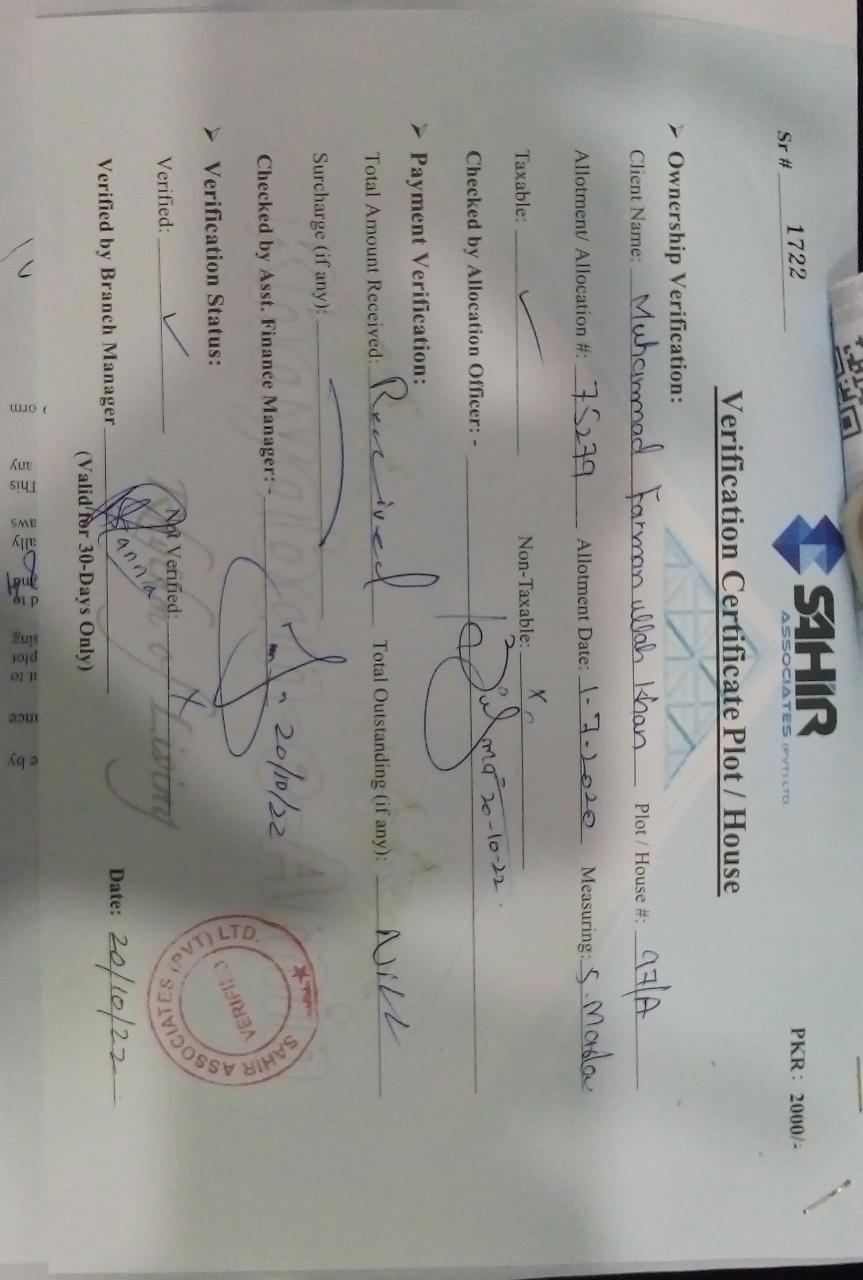 SAHIR
ASSOCIATES (PVT) LTD.
Sr # 1722
PKR: 2000/-
Verification Certificate Plot / House
➤ Ownership Verification:
Client Name: Muhammad Farman ullah Khan Plot / House #: 97/A
Allotment/ Allocation #: 75279 Allotment Date: 1-7-2020 Measuring: 5-Marla
Taxable: ✓ Non-Taxable: x
Checked by Allocation Officer: - 20-10-22
➤ Payment Verification:
Total Amount Received: Received Total Outstanding (if any): Nill
Surcharge (if any):
Checked by Asst. Finance Manager: - 20/10/22
➤ Verification Status:
Verified: ✓ Not Verified: x
Verified by Branch Manager Date: 20/10/22
(Valid for 30-Days Only)
SAHIR ASSOCIATES (PVT) LTD.
VERIFIED